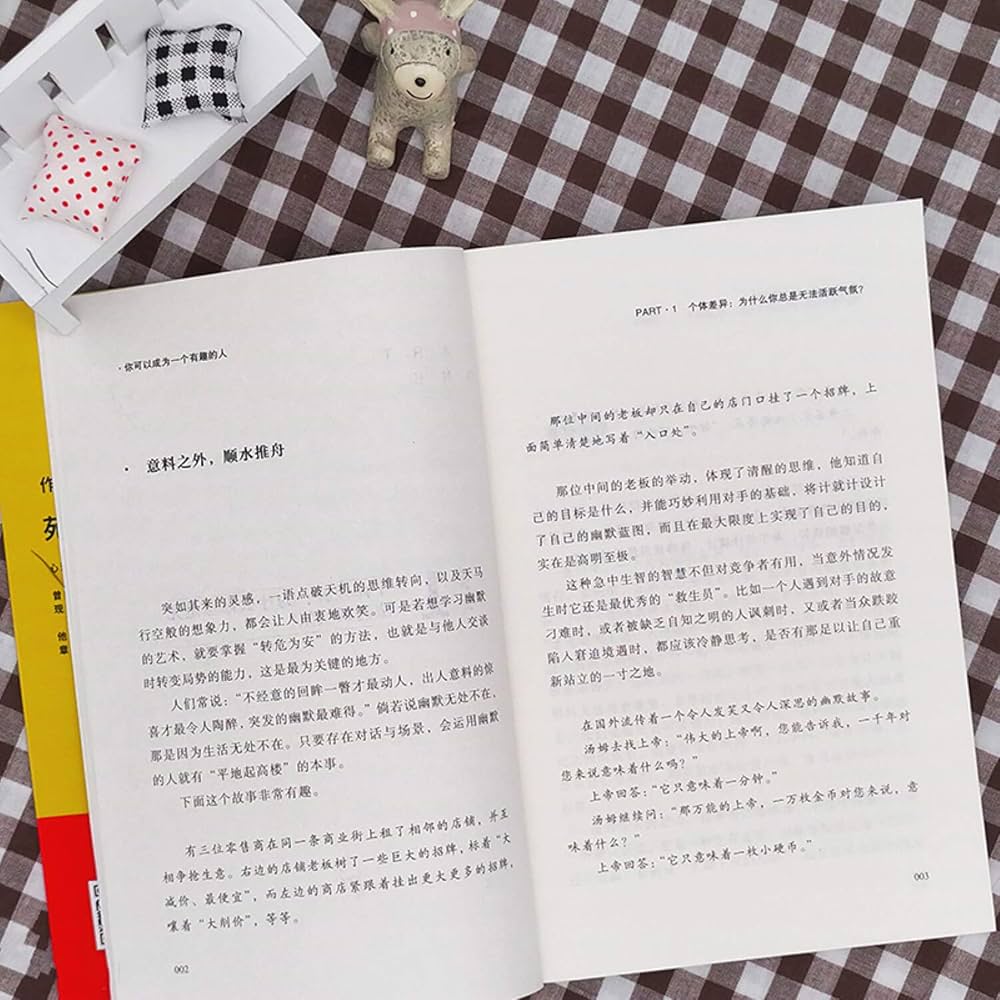 ·你可以成为一个有趣的人
· 意料之外，顺水推舟
突如其来的灵感，一语点破天机的思维转向，以及天马
行空般的想象力，都会让人由衷地欢笑。可是若想学习幽默
的艺术，就要掌握“转危为安”的方法，也就是与他人交谈
时转变局势的能力，这是最为关键的地方。
人们常说：“不经意的回眸一瞥才最动人，出人意料的惊
喜才最令人陶醉，突发的幽默最难得。”倘若说幽默无处不在，
那是因为生活无处不在。只要存在对话与场景，会运用幽默
的人就有“平地起高楼”的本事。
下面这个故事非常有趣。
有三位零售商在同一条商业街上租了相邻的店铺，并互
相争抢生意。右边的店铺老板树了一些巨大的招牌，标着“大
减价、最便宜”，而左边的商店紧跟着挂出更大更多的招牌，
嚷着“大削价”，等等。
002
PART·1 个体差异：为什么你总是无法活跃气氛？
那位中间的老板却只在自己的店门口挂了一个招牌，上
面简单清楚地写着“入口处”。
那位中间的老板的举动，体现了清醒的思维，他知道自
己的目标是什么，并能巧妙利用对手的基础，将计就计设计
了自己的幽默蓝图，而且在最大限度上实现了自己的目的，
实在是高明至极。
这种急中生智的智慧不但对竞争者有用，当意外情况发
生时它还是最优秀的“救生员”。比如一个人遇到对手的故意
刁难时，或者被缺乏自知之明的人讽刺时，又或者当众跌跤
陷入窘迫境遇时，都应该冷静思考，是否有那足以让自己重
新站立的一寸之地。
在国外流传着一个令人发笑又令人深思的幽默故事。
汤姆去找上帝：“伟大的上帝啊，您能告诉我，一千年对
您来说意味着什么吗？”
上帝回答：“它只意味着一分钟。”
汤姆继续问：“那万能的上帝，一万枚金币对您来说，意
味着什么？”
上帝回答：“它只意味着一枚小硬币。”
003
作
苑
心
曾
现
他
章